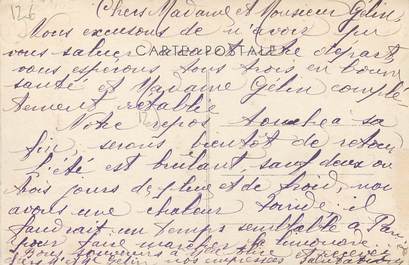 126
Chers Madame et Monsieur Gelin,
Nous excusons de n'avoir pu
vous saluer avant notre départ
CARTE POSTALE
vous espérons tous trois en bonne
santé et Madame Gelin complè
tement rétablie
Notre repos touche à sa
fin, serons bientôt de retour
l'été est brûlant, sauf deux ou
trois jours de pluie et de froid, nous
avons une chaleur torride. il
faudrait un temps semblable à
pour faire marcher la limonade.